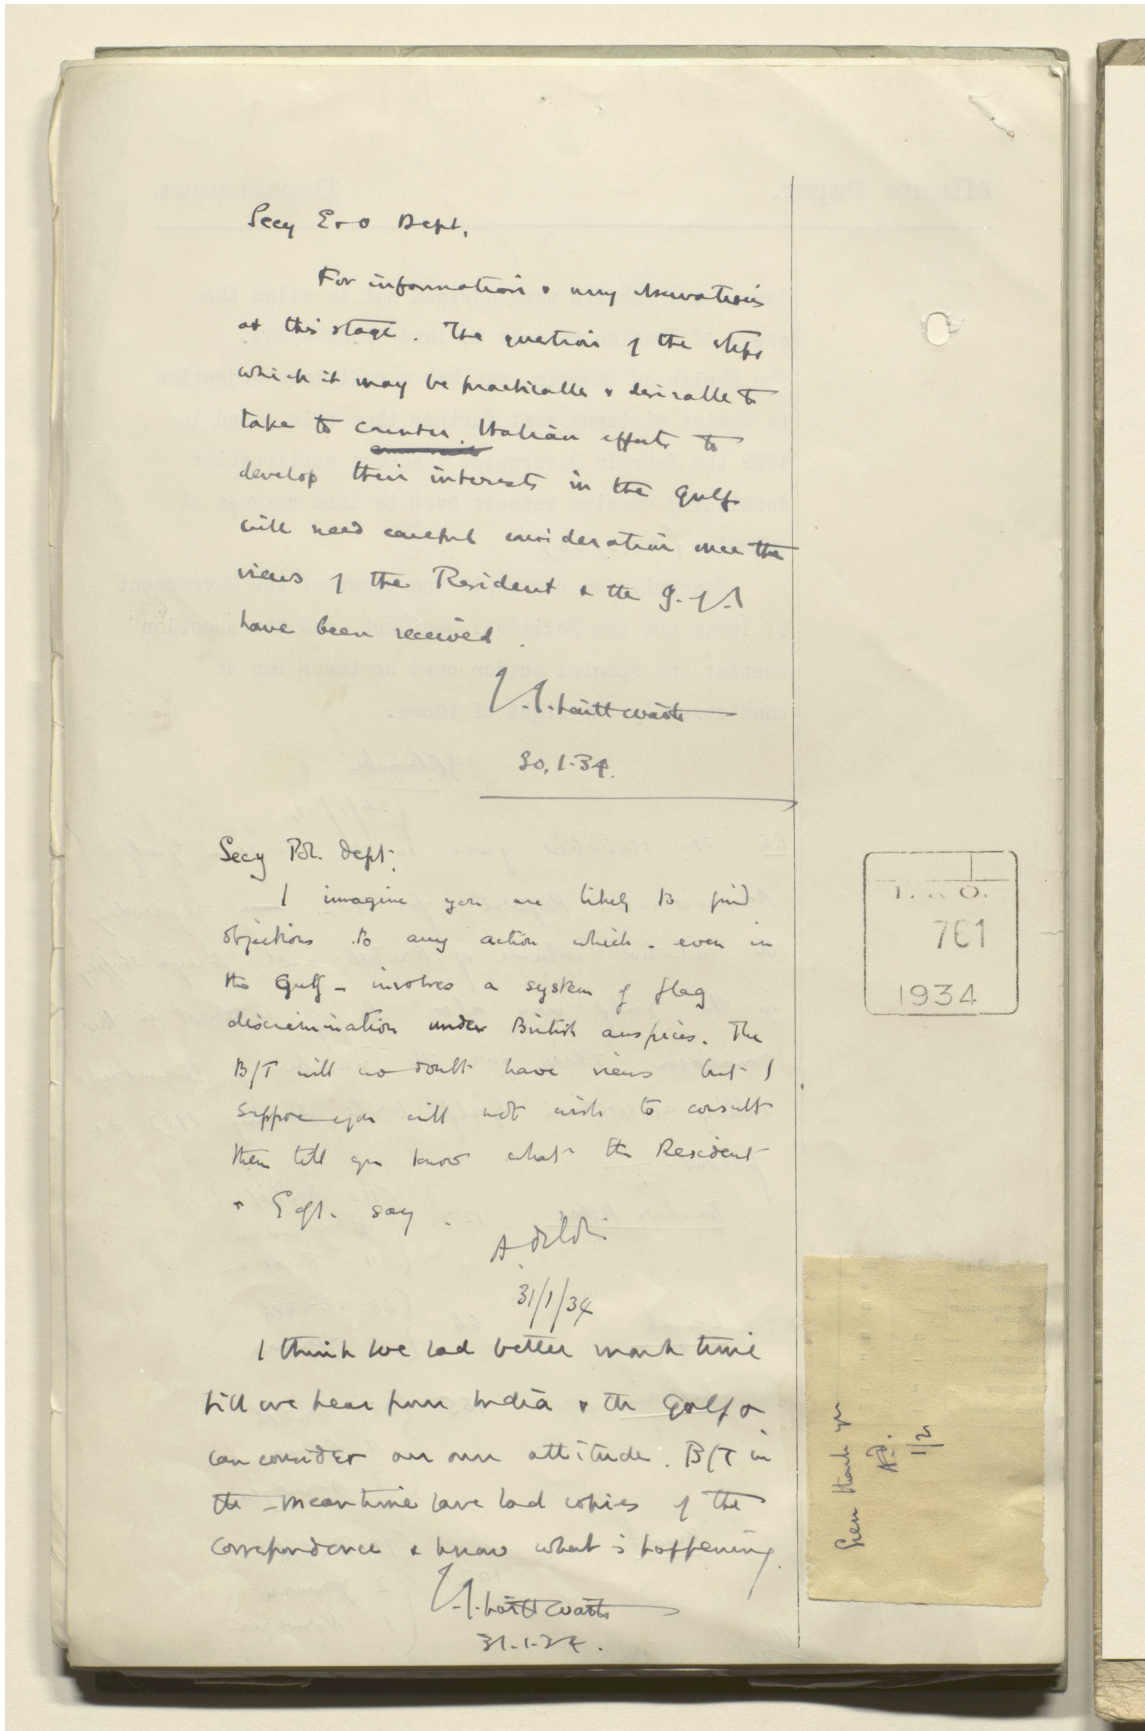 Secy E & O Dept.
For information & any observations
at this stage. The question of the steps
which it may be practicable & desirable to
take to counter Italian efforts to
develop their interests in the Gulf
will need careful consideration once the
views of the Resident & the G. of I.
have been received.
J. G. Laithwaite
30.1.34.
Secy Pol. Dept.
I imagine you are likely to find
objections to any action which - even in
the Gulf - involves a system of flag
discrimination under British auspices. The
B/T will no doubt have views but I
suppose you will not wish to consult
them till you know what the Resident
& G of I. say.
31/1/34
I think we had better mark time
till we hear from India & the Gulf &
can consider our own attitude. B/T in
the meantime have had copies of the
correspondence & know what is happening.
J. G. Laithwaite
31.1.34.
761
1934
Seen thank you
1/2